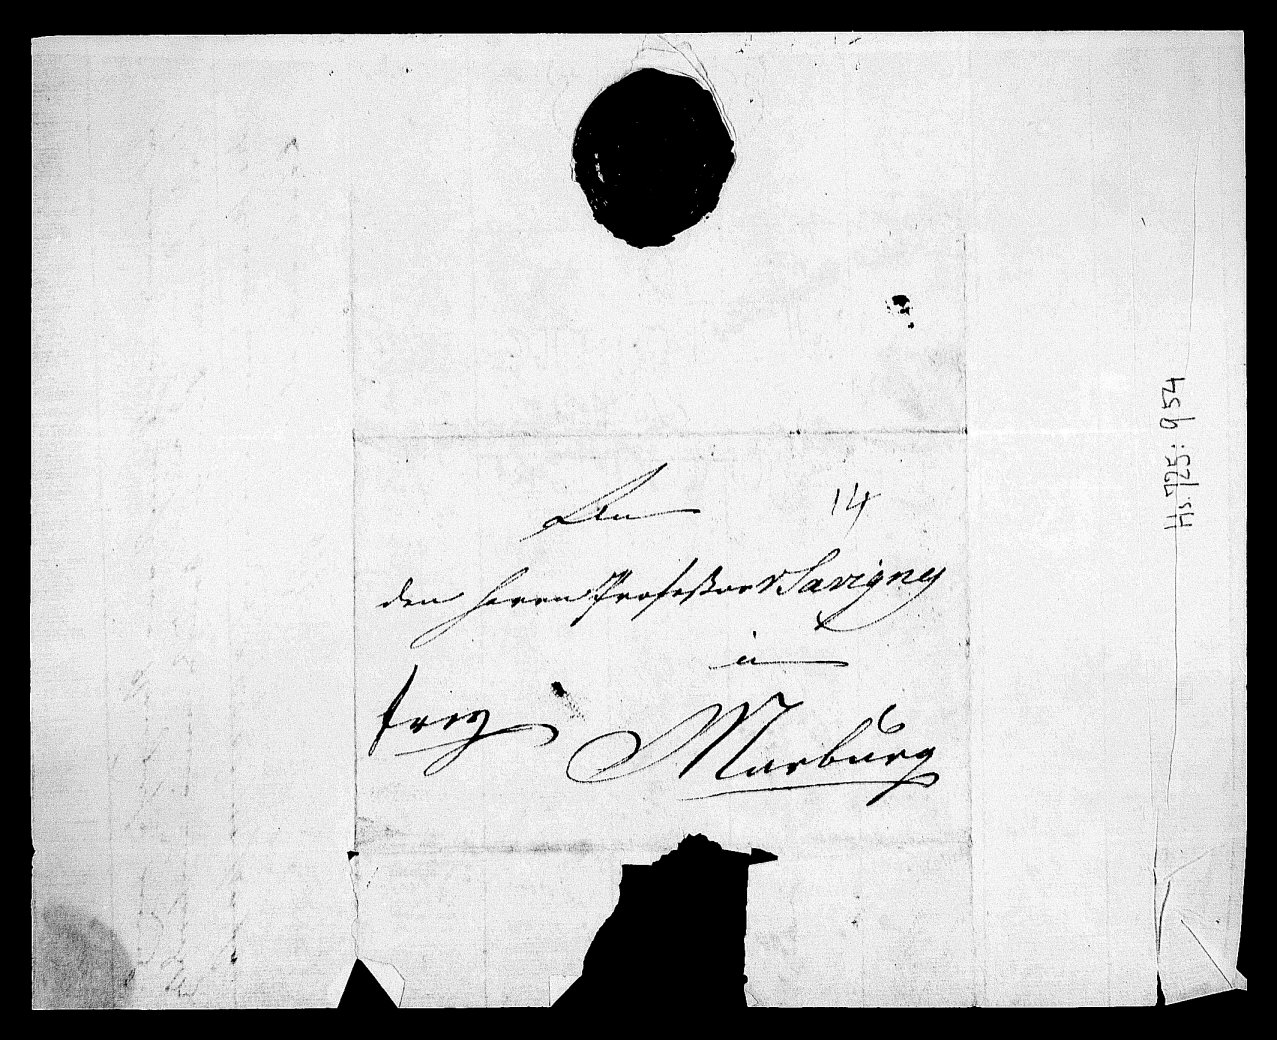 An
14
den Herrn Professor v Savigny
in
frey
Marburg
Hs. 725: 954